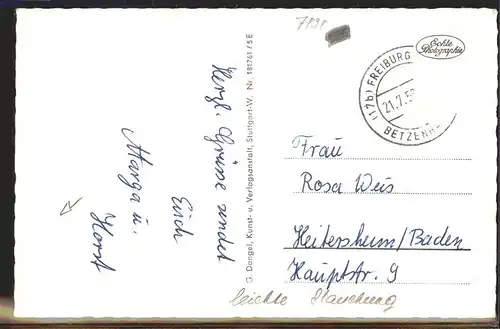 7898
Echte
Photographie
(17b) FREIBURG
21.7.5
BETZENH
Herzl. Grüsse sendet
Euch
Marga u.
Horst
G. Dangel, Kunst- u. Verlagsanstalt, Stuttgart-W. Nr. 18176 I / 5 E
Frau
Rosa Weis
Heitersheim/Baden
Hauptstr. 9
leichte Stauchung